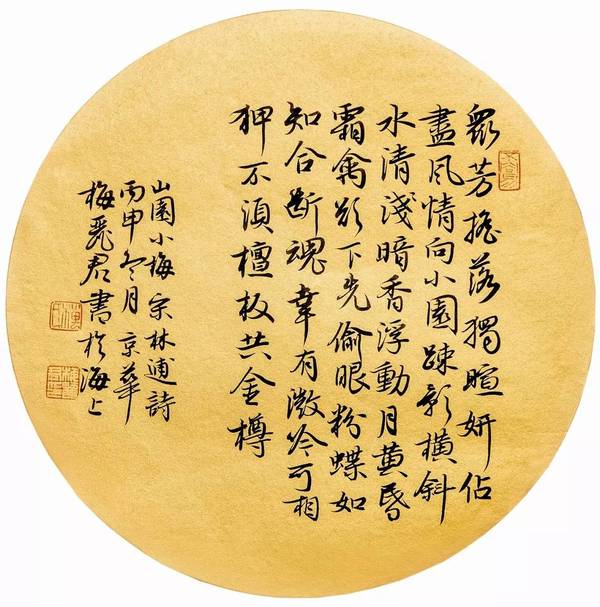 眾芳搖落獨暄妍佔
盡風情向小園疎影橫斜
水清淺暗香浮動月黃昏
霜禽欲下先偷眼粉蝶如
知合斷魂幸有微吟可相
狎不須檀板共金樽
山園小梅 宋林逋詩
丙申冬月 京華
梅君書於海上